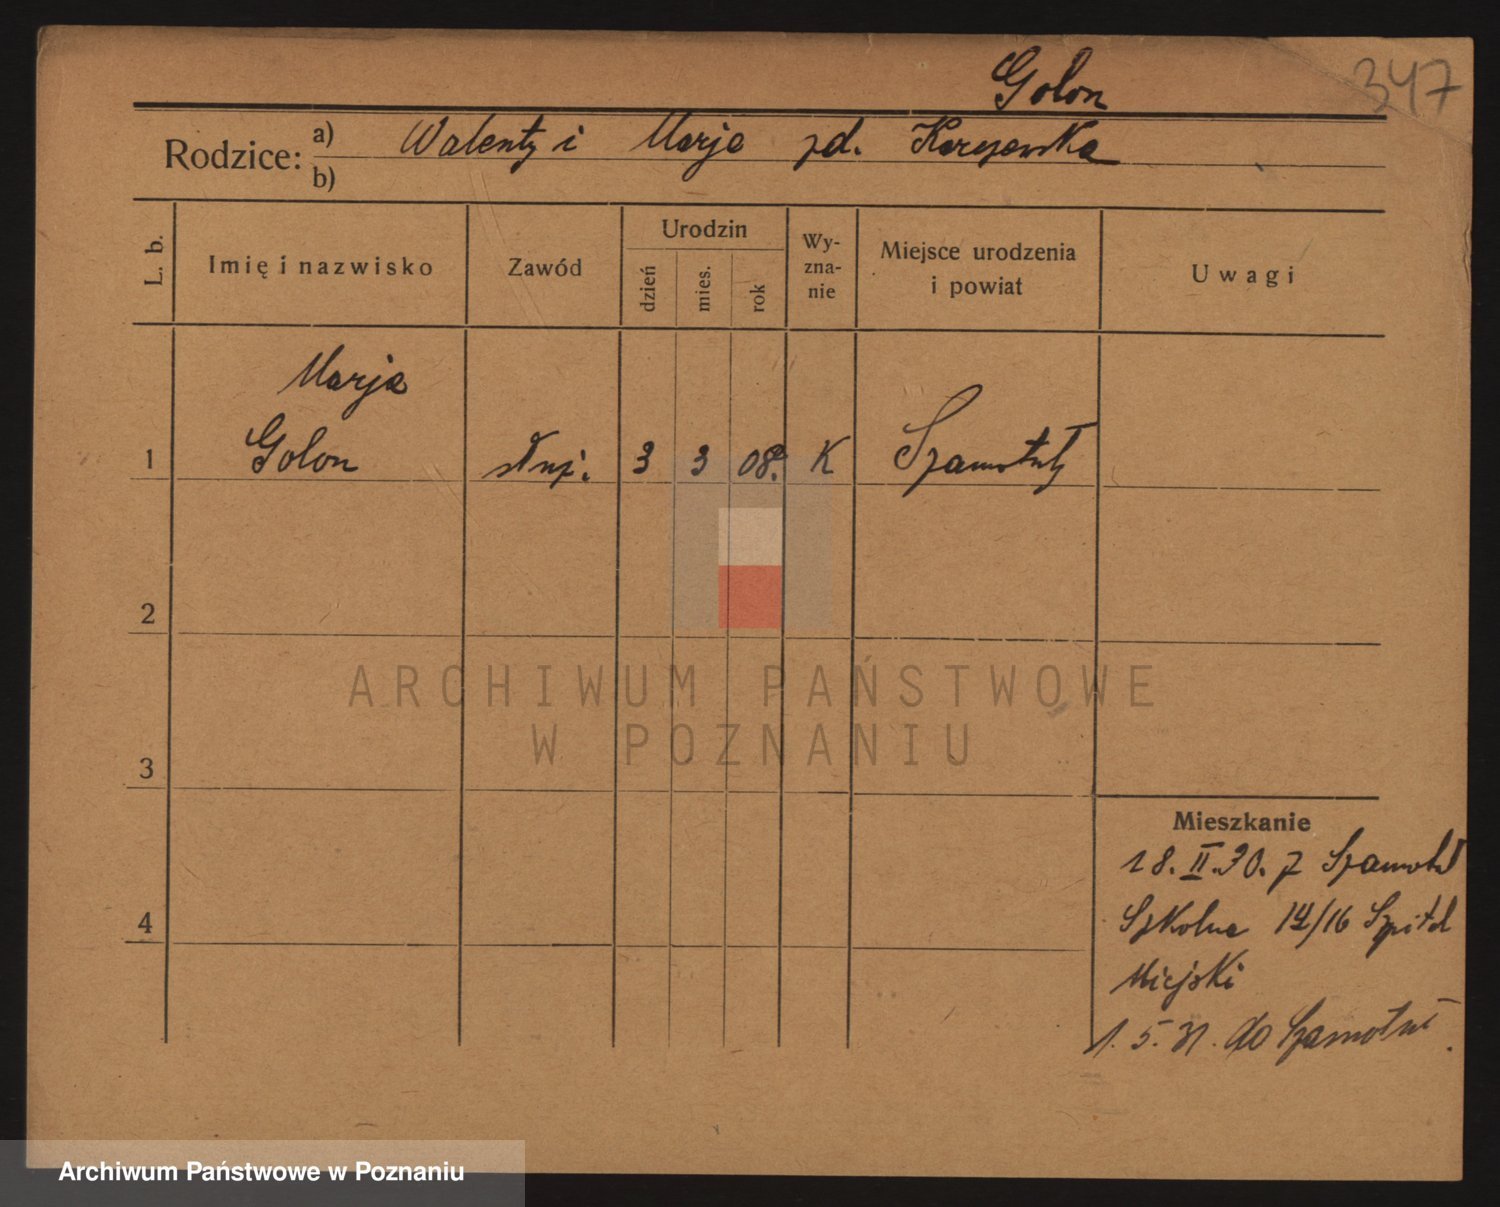 Golon
347
Rodzice: a) Walenty i Marja zd.
b)
L. b. Imię i nazwisko Zawód Urodzin dzień mies. rok Wy-zna-nie Miejsce urodzenia i powiat Uwagi
Marja
1 Golon służ. 3 3 08. K Szamotuły
2
3
4
ARCHIWUM PAŃSTWOWE
W POZNANIU
Mieszkanie
18. II. 30. z Szamotuł
Szkolna 14/16 Szpital
Miejski
1. 5. 31. do Szamotuł.
Archiwum Państwowe w Poznaniu